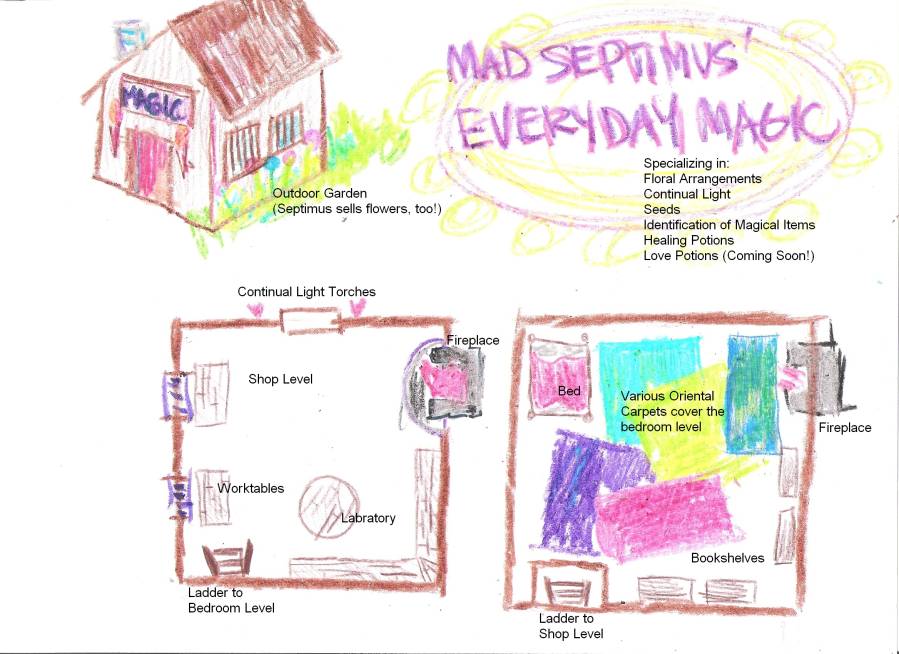 MAD SEPTIMUS'
EVERYDAY MAGIC
MAGIC
Specializing in:
Floral Arrangements
Continual Light
Seeds
Identification of Magical Items
Healing Potions
Love Potions (Coming Soon!)
Outdoor Garden
(Septimus sells flowers, too!)
Continual Light Torches
Fireplace
Shop Level
Worktables
Labratory
Ladder to
Bedroom Level
Bed
Various Oriental
Carpets cover the
bedroom level
Fireplace
Bookshelves
Ladder to
Shop Level